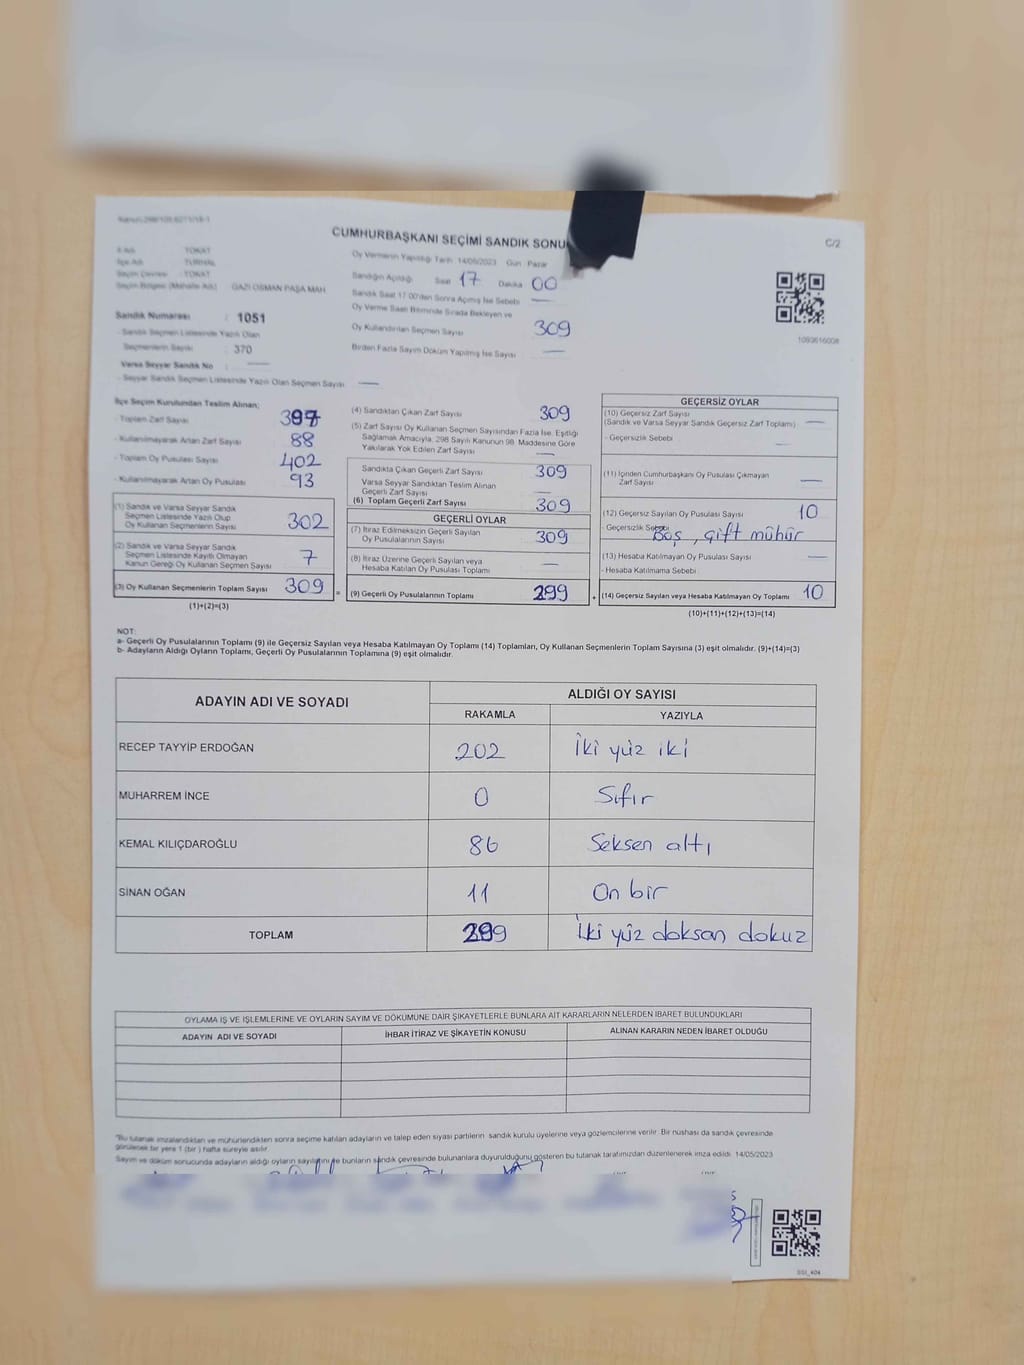 C/2
CUMHURBAŞKANI SEÇİMİ SANDIK SONU
İl Adı : TOKAT
İlçe Adı : TURHAL
Seçim Çevresi : TOKAT
Seçim Bölgesi (Mahalle Adı) : GAZİ OSMAN PAŞA MAH.
Sandık Numarası : 1051
- Sandık Seçmen Listesinde Yazılı Olan
Seçmenlerin Sayısı : 370
Varsa Seyyar Sandık No : —
- Seyyar Sandık Seçmen Listesinde Yazılı Olan Seçmen Sayısı : —
Oy Vermenin Yapıldığı Tarih 14/05/2023 Gün : Pazar
Sandığın Açıldığı Saat 17 Dakika 00
Sandık Saat 17.00'den Sonra Açılmış İse Sebebi —
Oy Verme Saati Bitiminde Sırada Bekleyen ve
Oy Kullandırılan Seçmen Sayısı 309
Birden Fazla Sayım Döküm Yapılmış İse Sayısı —
1093616008
İlçe Seçim Kurulundan Teslim Alınan;
- Toplam Zarf Sayısı 397
- Kullanılmayarak Artan Zarf Sayısı 88
- Toplam Oy Pusulası Sayısı 402
- Kullanılmayarak Artan Oy Pusulası 93
(1) Sandık ve Varsa Seyyar Sandık
Seçmen Listesinde Yazılı Olup
Oy Kullanan Seçmenlerin Sayısı 302
(2) Sandık ve Varsa Seyyar Sandık
Seçmen Listesinde Kayıtlı Olmayan
Kanun Gereği Oy Kullanan Seçmen Sayısı 7
(3) Oy Kullanan Seçmenlerin Toplam Sayısı 309
(1)+(2)=(3)
=
(4) Sandıktan Çıkan Zarf Sayısı 309
(5) Zarf Sayısı Oy Kullanan Seçmen Sayısından Fazla İse, Eşitliği
Sağlamak Amacıyla, 298 Sayılı Kanunun 98. Maddesine Göre
Yakılarak Yok Edilen Zarf Sayısı —
Sandıkta Çıkan Geçerli Zarf Sayısı 309
Varsa Seyyar Sandıktan Teslim Alınan
Geçerli Zarf Sayısı —
(6) Toplam Geçerli Zarf Sayısı 309
GEÇERLİ OYLAR
(7) İtiraz Edilmeksizin Geçerli Sayılan
Oy Pusulalarının Sayısı 309
(8) İtiraz Üzerine Geçerli Sayılan veya
Hesaba Katılan Oy Pusulası Toplamı —
(9) Geçerli Oy Pusulalarının Toplamı 299
+
GEÇERSİZ OYLAR
(10) Geçersiz Zarf Sayısı
(Sandık ve Varsa Seyyar Sandık Geçersiz Zarf Toplamı) —
- Geçersizlik Sebebi —
(11) İçinden Cumhurbaşkanı Oy Pusulası Çıkmayan
Zarf Sayısı —
(12) Geçersiz Sayılan Oy Pusulası Sayısı 10
- Geçersizlik Sebebi Boş, çift mühür
(13) Hesaba Katılmayan Oy Pusulası Sayısı —
- Hesaba Katılmama Sebebi
(14) Geçersiz Sayılan veya Hesaba Katılmayan Oy Toplamı 10
(10)+(11)+(12)+(13)=(14)
NOT:
a- Geçerli Oy Pusulalarının Toplamı (9) ile Geçersiz Sayılan veya Hesaba Katılmayan Oy Toplamı (14) Toplamları, Oy Kullanan Seçmenlerin Toplam Sayısına (3) eşit olmalıdır. (9)+(14)=(3)
b- Adayların Aldığı Oyların Toplamı, Geçerli Oy Pusulalarının Toplamına (9) eşit olmalıdır.
ADAYIN ADI VE SOYADI ALDIĞI OY SAYISI
RAKAMLA YAZIYLA
RECEP TAYYİP ERDOĞAN 202 İki yüz iki
MUHARREM İNCE 0 Sıfır
KEMAL KILIÇDAROĞLU 86 Seksen altı
SİNAN OĞAN 11 On bir
TOPLAM 299 İki yüz doksan dokuz
OYLAMA İŞ VE İŞLEMLERİNE VE OYLARIN SAYIM VE DÖKÜMÜNE DAİR ŞİKAYETLERLE BUNLARA AİT KARARLARIN NELERDEN İBARET BULUNDUKLARI
ADAYIN ADI VE SOYADI İHBAR İTİRAZ VE ŞİKAYETİN KONUSU ALINAN KARARIN NEDEN İBARET OLDUĞU
"Bu tutanak imzalandıktan ve mühürlendikten sonra seçime katılan adayların ve talep eden siyasi partilerin sandık kurulu üyelerine veya gözlemcilerine verilir. Bir nüshası da sandık çevresinde
görülecek bir yere 1 (bir) hafta süreyle asılır.
Sayım ve döküm sonucunda adayların aldığı oyların sayıları ile bunların sandık çevresinde bulunanlara duyurulduğunu gösteren bu tutanak tarafımızdan düzenlenerek imza edildi. 14/05/2023